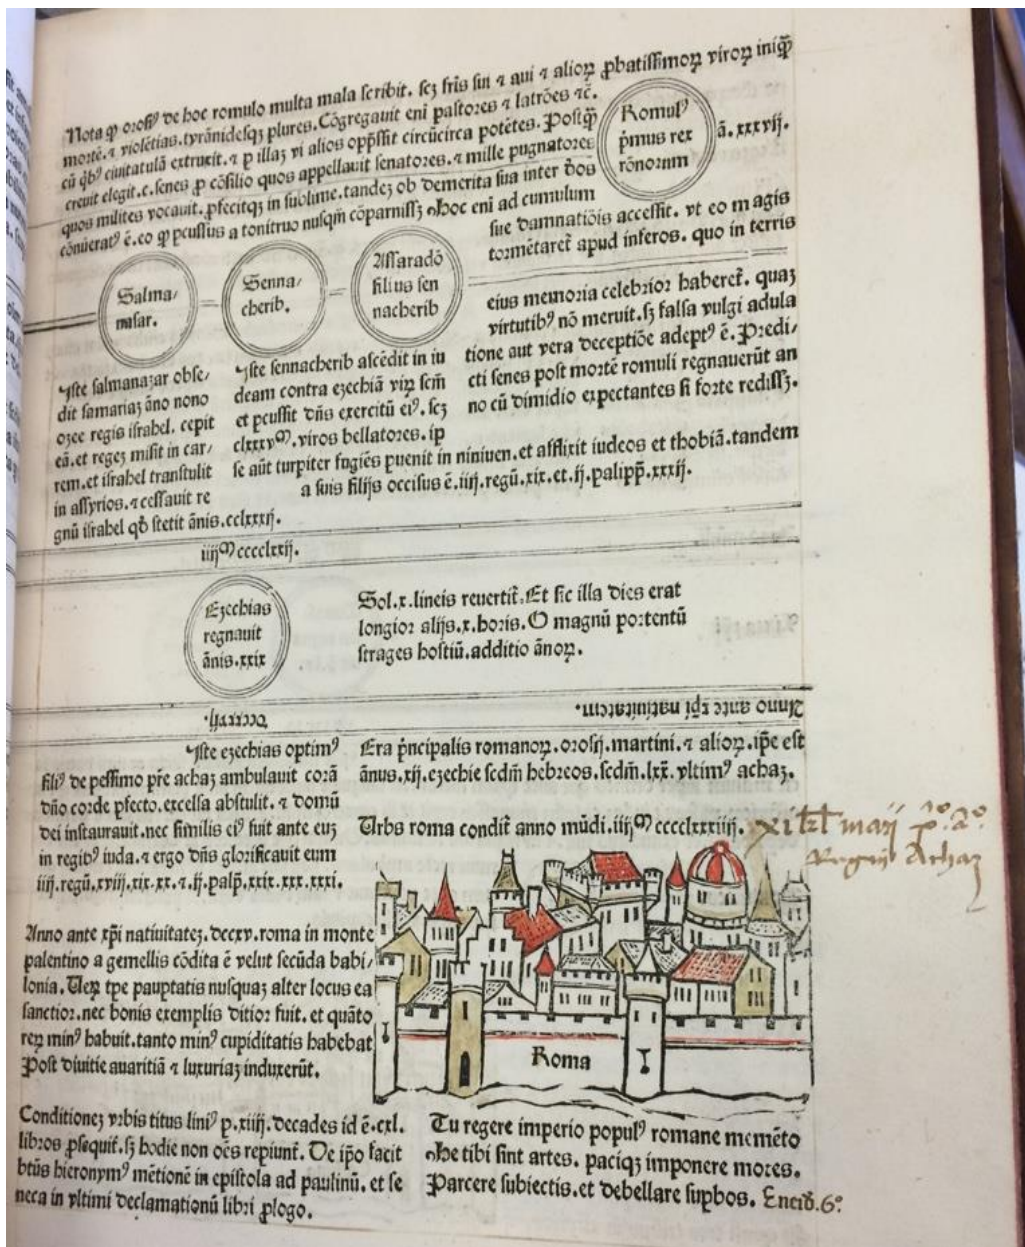 Nota ꝙ orosiꝰ de hoc romulo multa mala scribit. scꝫ fris sui ⁊ aui ⁊ alioꝝ ꝓbatissimoꝝ viroꝝ iniqᷓ
mortē. ⁊ violētias. tyrānidesqꝫ plures. Cōgregauit eni pastores ⁊ latrōes ⁊c̄.
cū qͥbꝰ ciuitatulā extruxit. ⁊ p illaꝫ vi alios opp̄ssit circūcirca potētes. Postqᷓ
creuit elegit. c. senes ꝓ cōsilio quos appellauit senatores. ⁊ mille pugnatores
quos milites vocauit. ꝓfecitqꝫ in sublime. tandeꝫ ob demerita sua inter
cōnūeratꝰ ē. eo ꝙ pcussus a tonitruo nusqᷓꝫ cōparuissꝫ Hoc eni ad cumulum
Romulꝰ
pͥmus rex
rōnorum
ā. xxxvij.
sue damnatiōis accessit. vt eo magis
tormētaret᷑ apud inferos. quo in terris
eius memoria celebrior haberet᷑. quaꝫ
virtutibꝰ nō meruit. sꝫ falsa vulgi adula
tione aut vera deceptiōe adeptꝰ ē. Predi/
cti senes post mortē romuli regnauerūt an
no cū dimidio expectantes si forte redissꝫ.
Salma/
nasar.
Senna/
cherib.
Assaradō
filius sen
nacherib
Iste salmanazar obse/
dit samariaꝫ āno nono
ozee regis israhel. cepit
eā. et regeꝫ misit in car/
rem. et israhel transtulit
in assyrios. ⁊ cessauit re
gnū israhel qd̄ stetit ānis. cclxxxij.
Iste sennacherib ascēdit in iu
deam contra ezechiā viꝝ scm̄
et pcussit dn̄s exercitū eiꝰ. scꝫ
clxxxvᴹ. viros bellatores. ip
se aūt turpiter fugiēs puenit in niniuen. et afflixit iudeos et thobiā. tandem
a suis filijs occisus ē. iiij. regū. xix. et. ij. palipp̄. xxxij.
iiijᴹ cccclxxij.
Ezechias
regnauit
ānis. xxix
Sol. x. lineis reuertit᷑. Et sic illa dies erat
longior alijs. x. horis. O magnū portentū
strages hostiū. additio ānoꝝ.
Anno ante xp̄i natiuitatem.
Iste ezechias optimꝰ
filiꝰ de pessimo pr̄e achaꝫ ambulauit corā
dn̄o corde pfecto. excelsa abstulit. ⁊ domū
dei instaurauit. nec similis eiꝰ fuit ante euꝫ
in regibꝰ iuda. ⁊ ergo dn̄s glorificauit eum
iiij. regū. xviij. xix. xx. ⁊. ij. palp̄. xxix. xxx. xxxi.
Era pͥncipalis romanoꝝ. orosij. martini. ⁊ alioꝝ. ip̄e est
ānus. xij. ezechie scdm̄ hebreos. scdm̄. lxx. vltimꝰ achaꝫ.
Urbs roma condit᷑ anno mūdi. iiijᴹ cccclxxxiiij.
Regis Achaz
Anno ante xp̄i natiuitateꝫ. dccxv. roma in monte
palentino a gemellis cōdita ē velut secūda babi/
lonia. Ueꝝ tpe pauptatis nusquaꝫ alter locus ea
sanctior. nec bonis exemplis ditior fuit. et quāto
reꝝ minꝰ habuit. tanto minꝰ cupiditatis habebat
Post diuitie auaritiā ⁊ luxuriaꝫ induxerūt.
Roma
Conditioneꝫ vrbis titus liuiꝰ p. xiiij. decades id ē. cxl.
libros ꝓsequit᷑. sꝫ hodie non oēs repiunt᷑. De ip̄o facit
btūs hieronymꝰ mētionē in epistola ad paulinū. et se
neca in vltimi declamationū libri ꝓlogo.
Tu regere imperio populꝰ romane memēto
He tibi sint artes. paciqꝫ imponere mores.
Parcere subiectis. et debellare supbos. Eneid. 6°.